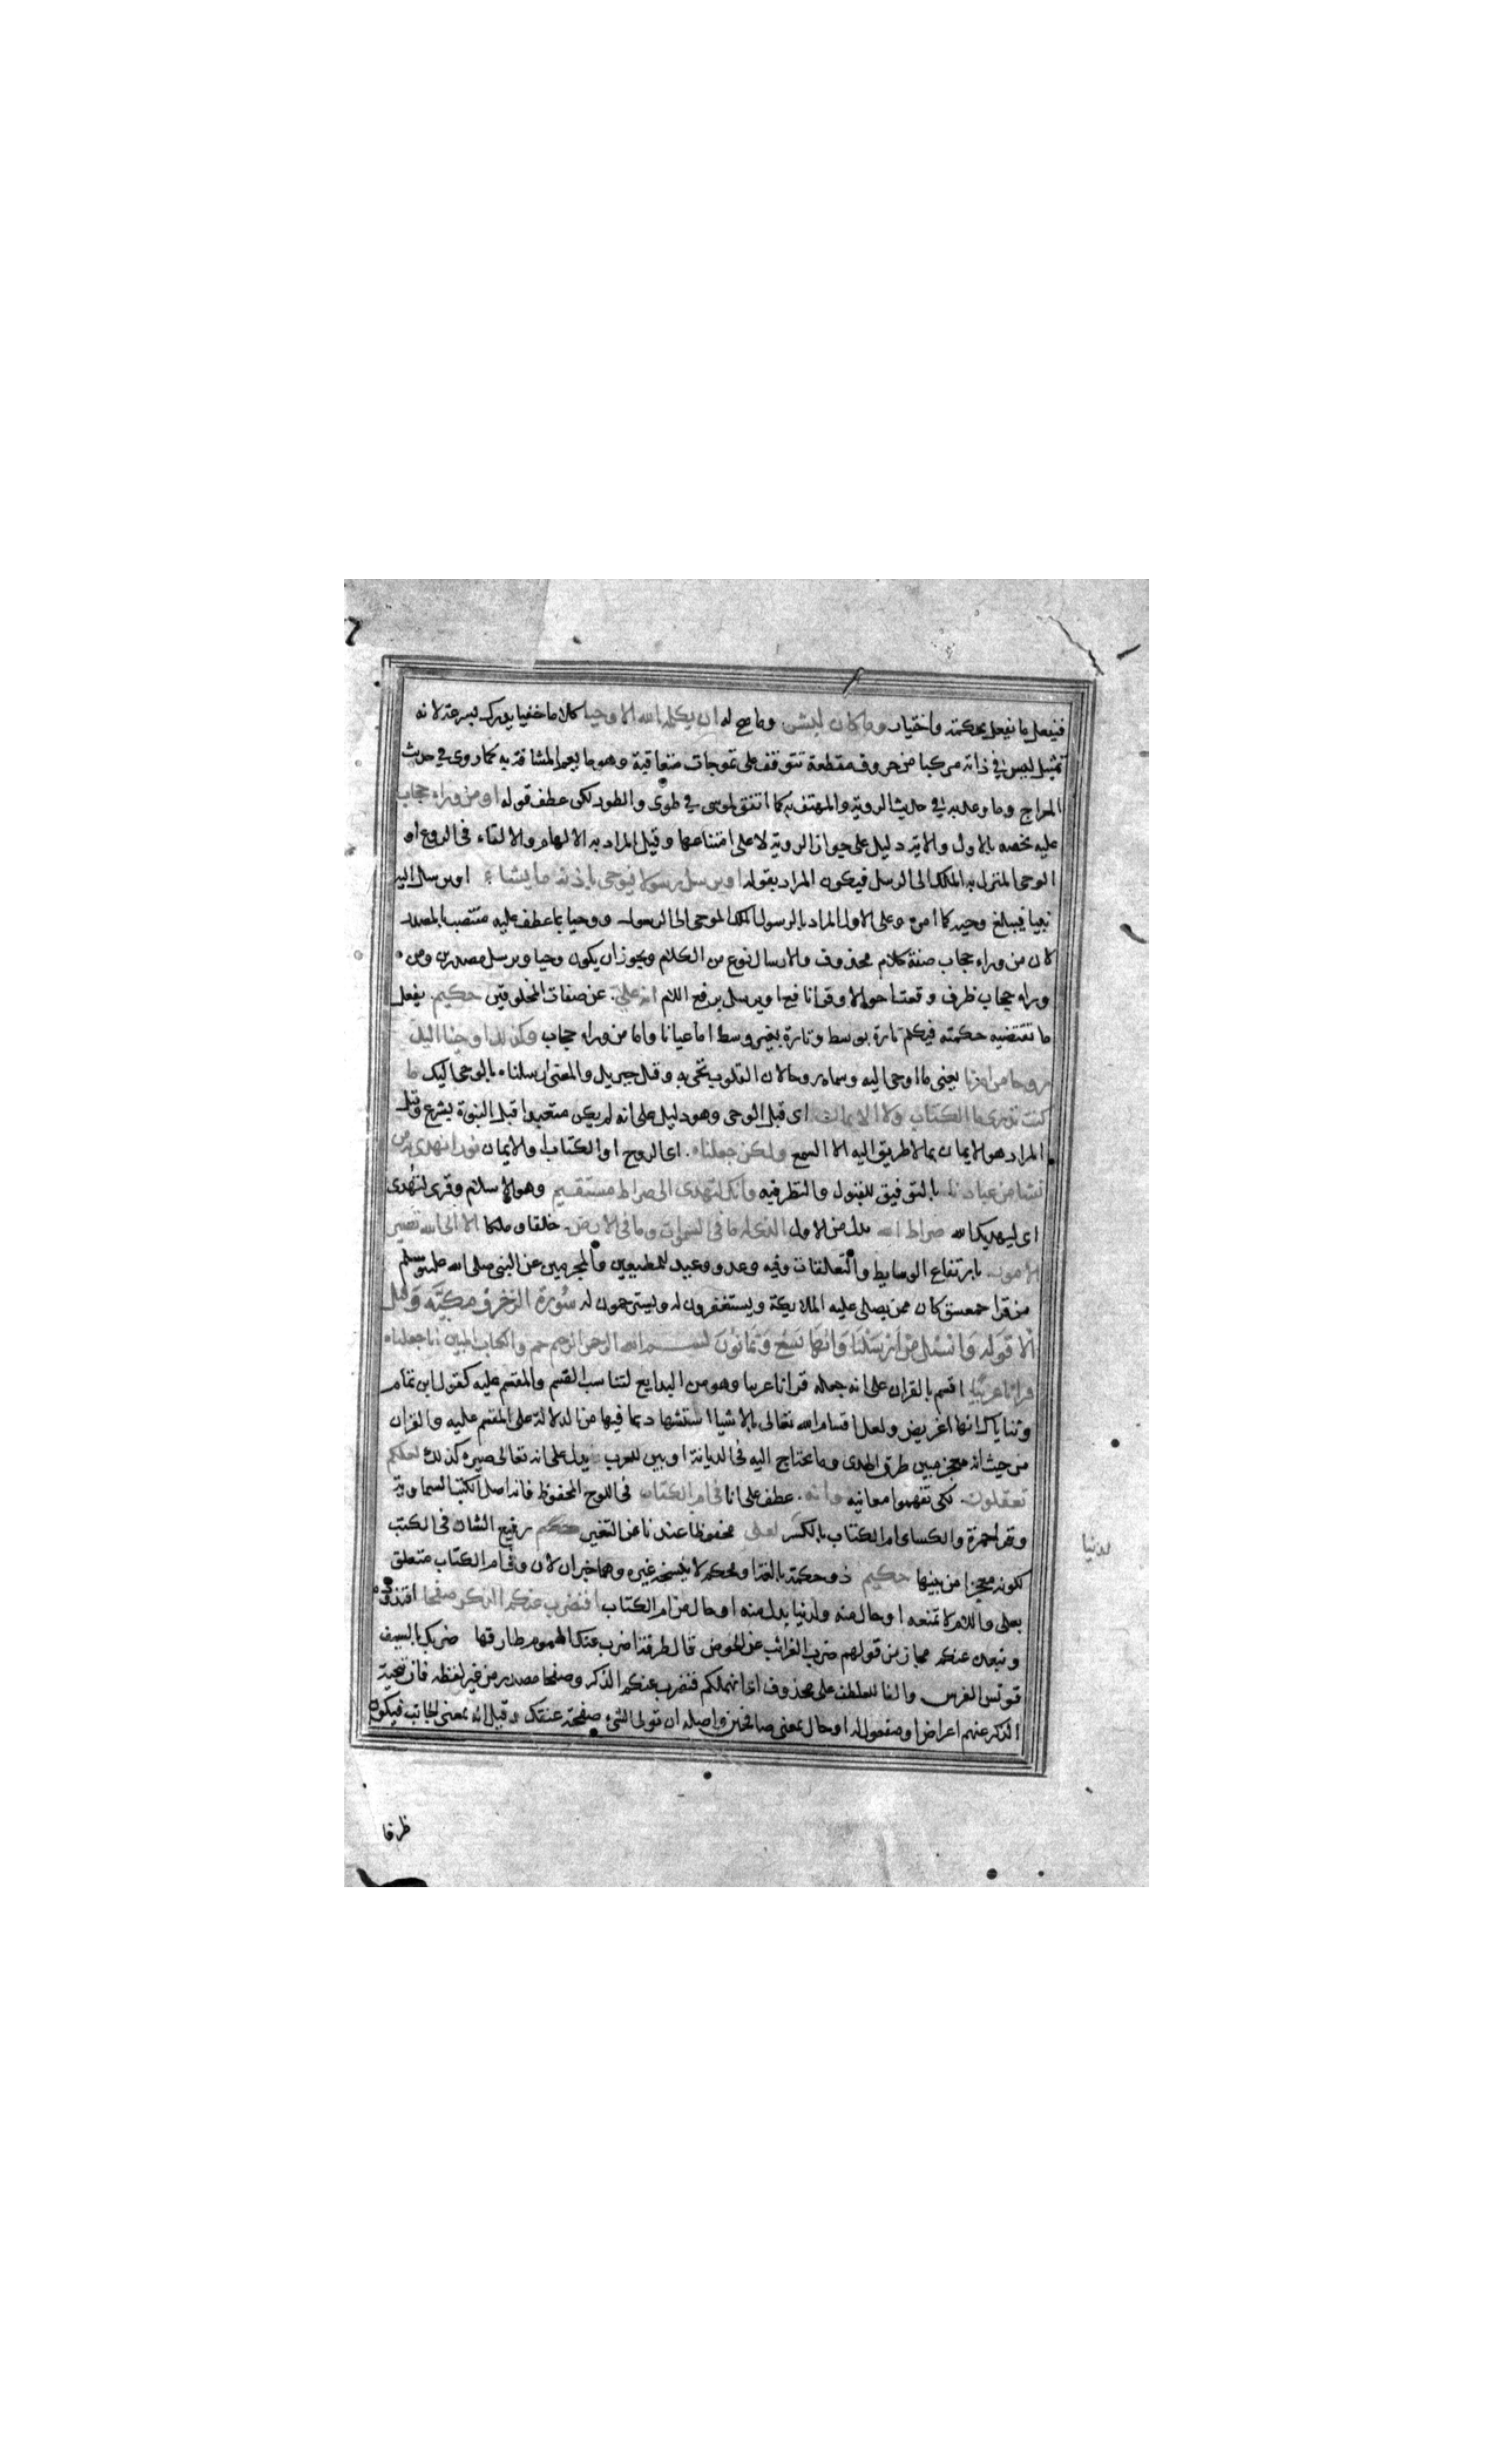 فيفعل ما يفعل بحكمته واختيار وما كان لبشر وما صح له ان يكلمه الله الا وحيا كلاما خفيا يدرك بسرعة لانه
تمثيل ليس في ذاته مركبا من حروف مقطعة تتوقف على تموجات متعاقبة وهو ما يعم المشافه به كما روى في حديث
المعراج وما وعد به في حديث الروية والمهتف به كما اتفق لموسى في طوى والطور لكن عطف قوله او من وراء حجاب
عليه يخصه بالاول والاية دليل على جواز الروية لا على امتناعها وقيل المراد به الالهام والالقاء فى الروع او
الوحى المنزل به الملك الى الرسل فيكون المراد بقوله او يرسل رسولا فيوحى باذنه ما يشاء او يرسل اليه
نبيا فيبلغ وحيه كما امره وعلى الاول المراد بالرسول الملك الموحى الى الرسول ووحيا بما عطف عليه منتصب بالمصدر
لان من وراء حجاب صفة كلام محذوف والارسال نوع من الكلام ويجوز ان يكون وحيا ويرسل مصدرين ومن
وراء حجاب ظرف وقعت احوالا وقرا نافع او يرسل برفع اللام انه علي عن صفات المخلوقين حكيم يفعل
ما تقتضيه حكمته فيكلم تارة بوسط وتارة بغير وسط اما عيانا واما من وراء حجاب وكذلك اوحينا اليك
روحا من امرنا يعنى ما اوحى اليه وسماه روحا لان القلوب تحى به وقيل جبريل والمعنى ارسلناه بالوحى اليك ما
كنت تدرى ما الكتاب ولا الايمان اى قبل الوحى وهو دليل على انه لم يكن متعبدا قبل النبوة بشرع وقيل
المراد هو الايمان بما لا طريق اليه الا السمع ولكن جعلناه اى الروح او الكتاب او الايمان نورا نهدى به من
نشا من عبادنا بالتوفيق للقبول والنظر فيه وانك لتهدى الى صراط مستقيم وهو الاسلام وقرى لتهدى
اى ليهديك الله صراط الله بدل من الاول الذى له ما في السموات وما في الارض خلقا وملكا الا الى الله تصير
الامور بارتفاع الوسايط والتعلقات وفيه وعد ووعيد للمطيعين والمجرمين عن النبى صلى الله عليه وسلم
من قرا حمعسق كان ممن يصلى عليه الملايكة ويستغفرون له ويسترحمون له سورة الزخرف مكية وقيل
الا قوله واسئل من ارسلنا وايها تسع وثمانون بسم الله الرحمن الرحيم حم والكتاب المبين انا جعلناه
قرانا عربيا اقسم بالقران على انه جعله قرانا عربيا وهو من البدايع لتناسب القسم والمقسم عليه كقول ابن تمام
وثناياك انها اغريض ولعل اقسام الله تعالى بالاشيا استشهاد بما فيها من الدلالة على المقسم عليه والقران
من حيث انه معجز مبين طرق الهدى وما يحتاج اليه فى الديانة او بين للعرب يدل على انه تعالى صيره كذلك لعلكم
تعقلون لكى تفهموا معانيه وانه عطف على انا فى ام الكتاب فى اللوح المحفوظ فانه اصل الكتب السماوية
وقرا حمزة والكساى ام الكتاب بالكسر لعلى محفوظا عندنا عن التغير حكيم رفيع الشان فى الكتب
لكونه معجزا من بينها حكيم ذو حكمة بالغة او محكم لا ينسخه غيره وهما خبران لان وفى ام الكتاب متعلق
بعلى واللام لا تمنعه او حال منه ولدينا بدل منه او حال من ام الكتاب افنضرب عنكم الذكر صفحا افنذوده
ونبعده عنكم مجاز من قولهم ضرب الغرائب عن الحوض قال طرفة اضرب عنك الهموم طارقها ضربك بالسيف
قونس الفرس والفا للعطف على محذوف اى انهملكم فنضرب عنكم الذكر وصفحا مصدر من غير لفظه فان تنحية
الذكر عنهم اعراض او مفعول له او حال بمعنى صافحين واصله ان تولى الشىء صفحة عنقك وقيل انه بمعنى الجانب فيكون
لدينا
ظرفا